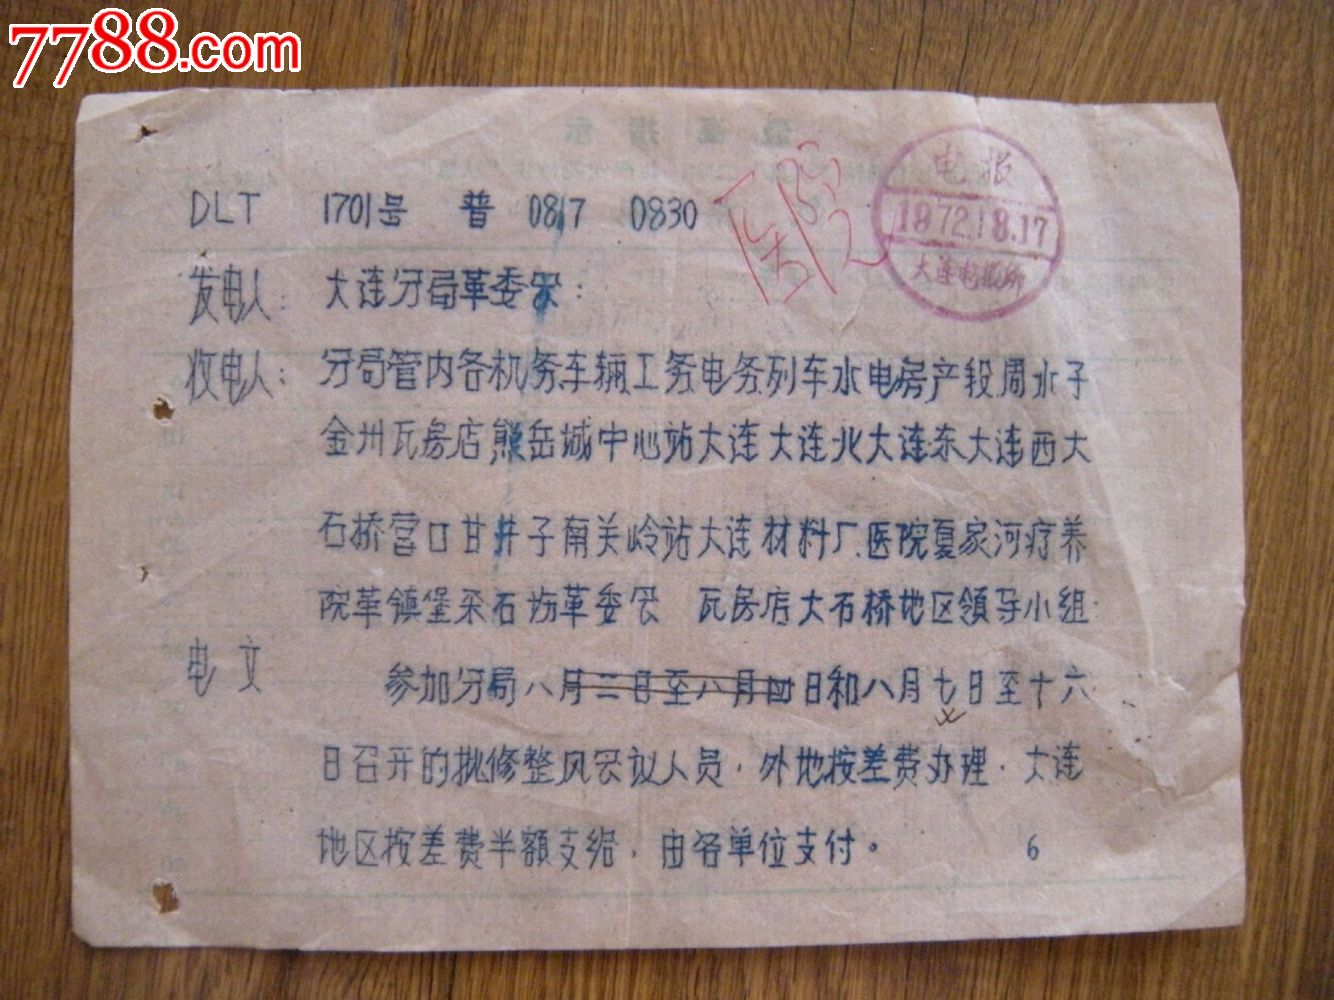 7788.com
DLT 1701号 普 0817 0830
医院
电报
1972.8.17
大连电报所
发电人: 大连分局革委会:
收电人: 分局管内各机务车辆工务电务列车水电房产段周水子
金州瓦房店熊岳城中心站大连大连北大连东大连西大
石桥营口甘井子南关岭站大连材料厂医院夏家河疗养
院革镇堡采石场革委会 瓦房店大石桥地区领导小组:
电文 参加分局八月二日至八月四日和八月七日至十六
日召开的批修整风会议人员,外地按差费办理,大连
地区按差费半额支给,由各单位支付。 6